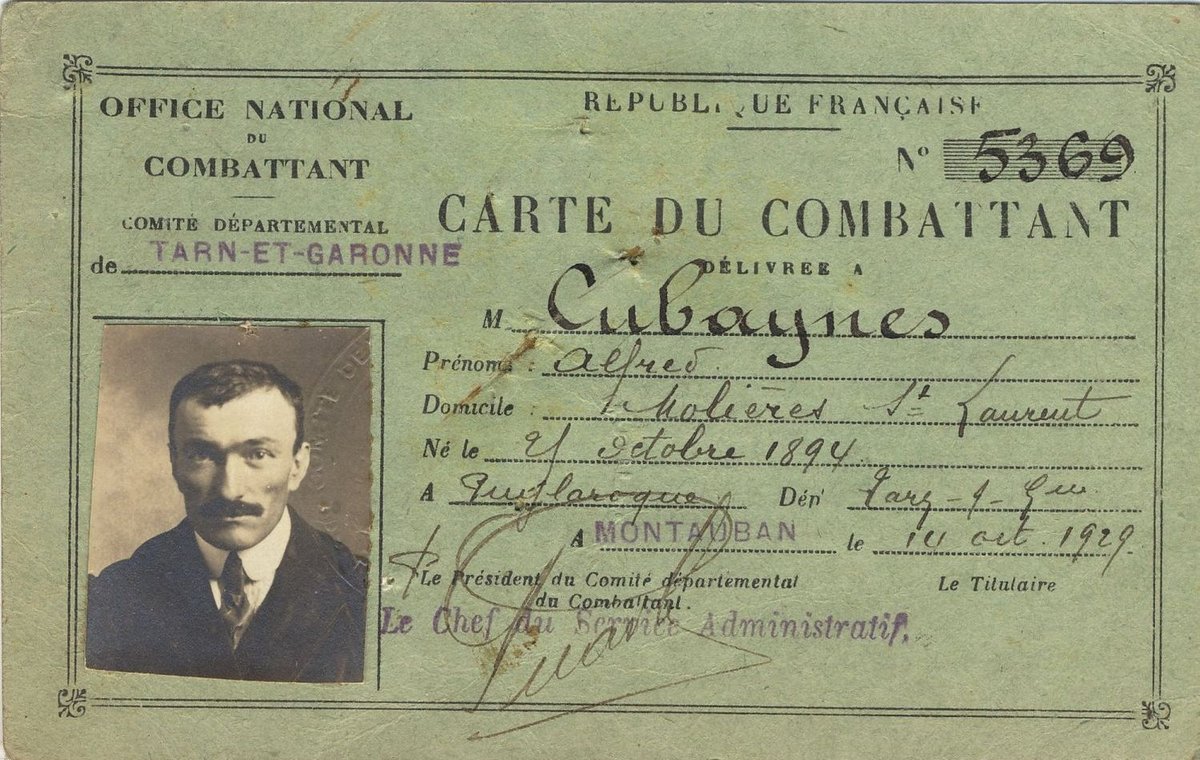 OFFICE NATIONAL
DU
COMBATTANT
COMITÉ DÉPARTEMENTAL
de TARN-ET-GARONNE
RÉPUBLIQUE FRANÇAISE
N° 5369
CARTE DU COMBATTANT
DÉLIVRÉE A
M Cubaynes
Prénoms : Alfred
Domicile : Molières St Laurent
Né le octobre 1894
A Puylaroque Dépt
A MONTAUBAN le 14 oct. 1929
Le Président du Comité départemental
du Combattant.
Le Titulaire
Le Chef du Service Administratif.